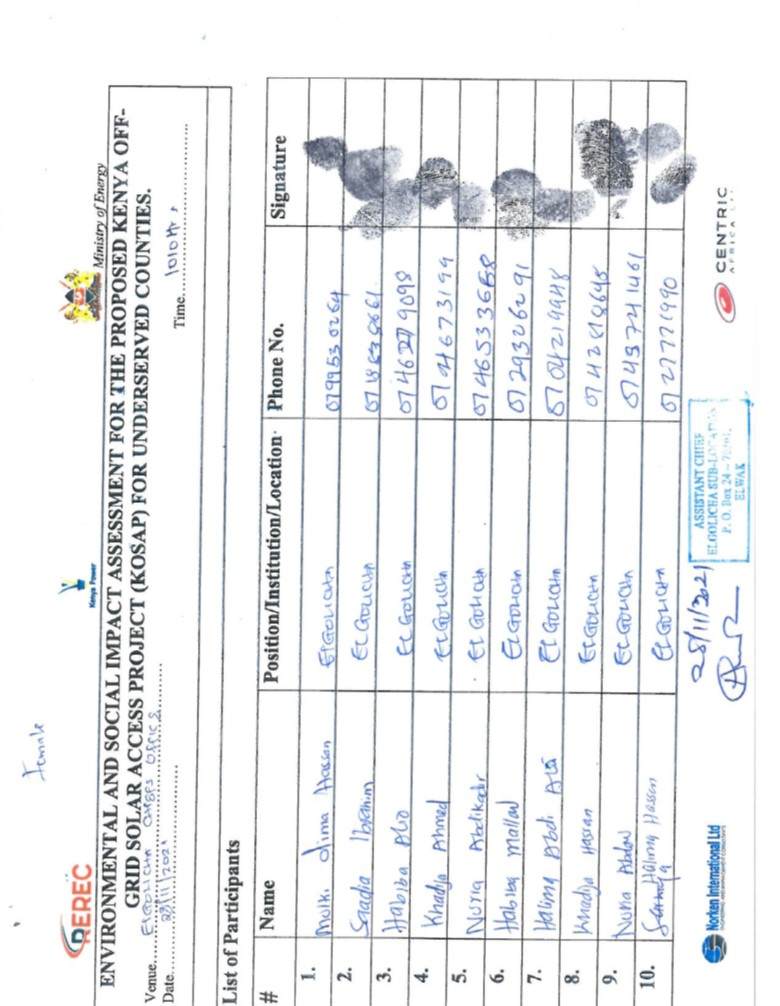 Female
REREC
Kenya Power
Ministry of Energy
ENVIRONMENTAL AND SOCIAL IMPACT ASSESSMENT FOR THE PROPOSED KENYA OFF-
GRID SOLAR ACCESS PROJECT (KOSAP) FOR UNDERSERVED COUNTIES.
Venue ELGOLICHA CHIEFS OFFICE
Date 28/11/2021 Time 1010Hrs
List of Participants
# Name Position/Institution/Location Phone No. Signature
1. Molki Jima Hassan ELGOLICHA 0799530264
2. Saadia Ibrahim ELGOLICHA
3. Habiba Alio ELGOLICHA 0746279098
4. Khadija Ahmed ELGOLICHA 0704673199
5. Nuria Abdikadir ELGOLICHA 0746533668
6. Habiba Mallow ELGOLICHA 0729326291
7. Halima Abdi Ali ELGOLICHA 0704219948
8. Khadija Hassan ELGOLICHA 0742818645
9. Nuria Abdow ELGOLICHA 0743741461
10. Halima Hassan ELGOLICHA 0727771990
28/11/2021
ASSISTANT CHIEF
ELGOLICHA SUB-LOCATION
P. O. Box 24 – 70101,
ELWAK
Norken International Ltd
CENTRIC
AFRICA LTD